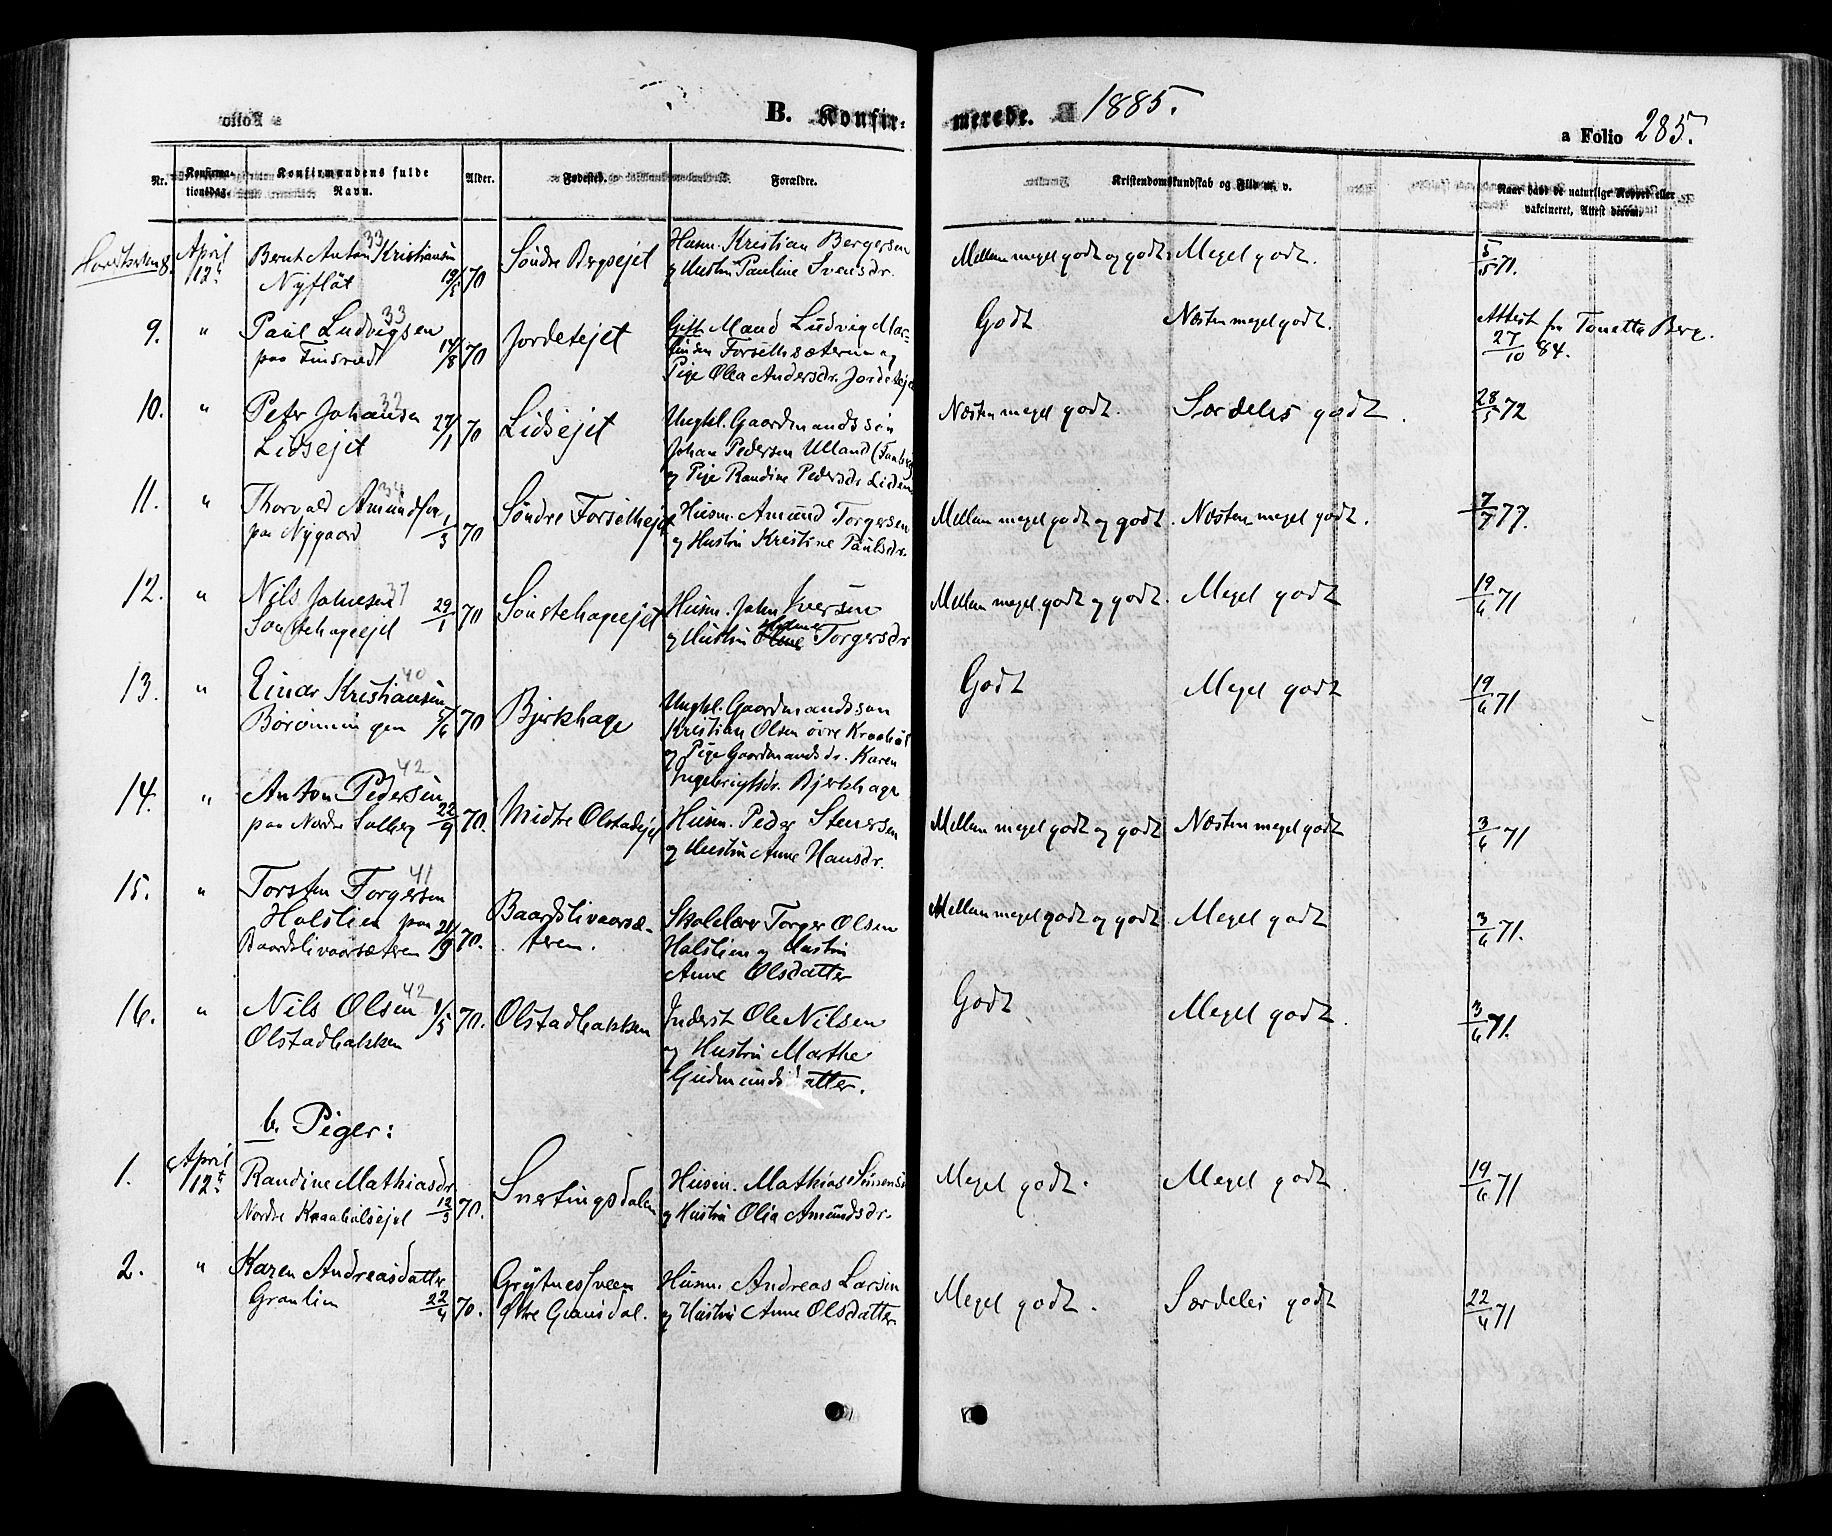 B. Konfirmerede. 1885.
a Folio 285.
Nr. Konfirmationsdag. Konfirmandens fulde Navn. Alder. Fødested. Forældre. Kristendomskundskab og Flid m. v. Naar havt de naturlige Kopper eller vakcineret, Attest derom.
8. April 12te
Bernt Anton Kristiansen 33
Nyflöt 70
Söndre Bergsejet
Husm. Kristian Bergersen
og Hustru Pauline Svensdr.
Mellem meget godt og godt. Meget godt. 5/5 71.
9. "
Paul Ludvigsen 33
paa 14/8 70
Jordetejet
Gift Mand Ludvig Mar-
tinsen Forsethsæteren og
Pige Olea Andersdr. Jordetejet
Godt Næsten meget godt. Attest fra Tonetta Berg.
27/10 84.
10. "
Peter Johansen
Lidsejet 27/1 70
Lidsejet
Ungkl. Gaardmandssön
Johan Pedersen Ulland (Faaberg)
og Pige Randine Pedersdr. Lidsejet
Næsten meget godt. Særdeles godt. 28/5 72
11. "
Thorvald Amundsen 34
paa Nygaard 1/3 70
Söndre Forsethejet
Husm. Amund Torgersen
og Hustru Kristine Paulsdr.
Mellem meget godt og godt. Næsten meget godt. 7/7 77.
12. "
Nils Johnsen 37
Sönstehageejet 29/1 70
Sönstehageejet
Husm. John Iversen
og Hustru Torgersdr
Mellem meget godt og godt. Meget godt 19/6 71
13. "
Einar Kristiansen 40
70
Bjerkhage
Ungkl. Gaardmandssön
Kristian Olsen övre Kraaböl
og Pige Gaardmandsdr. Karen
Ingebrigtsdr. Bjerkhage
Godt Meget godt 19/6 71
14. "
Anton Pedersen 42
paa Nordre Solberg 22/9 70.
Midtre Olstadejet
Husm. Peder Stenersen
og Hustru Anne Hansdr.
Mellem meget godt og godt Næsten meget godt 3/6 71
15. "
Torsten Torgersen 41
Holslien paa
Baardslivaarsæteren 21/9 70.
Baardslivaarsæ-
teren.
Skolelærer Torger Olsen
Holslien og Hustru
Anne Olsdatter
Mellem meget godt og godt Meget godt 3/6 71.
16. "
Nils Olsen 42
Olstadbakken 70.
Olstadbakken
Inderst Ole Nilsen
og Hustru Marthe
Gudmundsdatter.
Godt Meget godt. 3/6 71.
b. Piger:
1. April 12te
Randine Mathiasdr
Nordre Kraabölsejet 12/3 70.
Snertingsdalen
Husm. Mathias Simensen
og Hustru Olia Amundsdr.
Meget godt. Meget godt. 19/6 71
2. "
Karen Andreasdatter
Granlien 22/4 70.
Grytnessveen
Östre Gausdal.
Husm. Andreas Larsen
og Hustru Anne Olsdatter
Meget godt. Særdeles godt 22/6 71